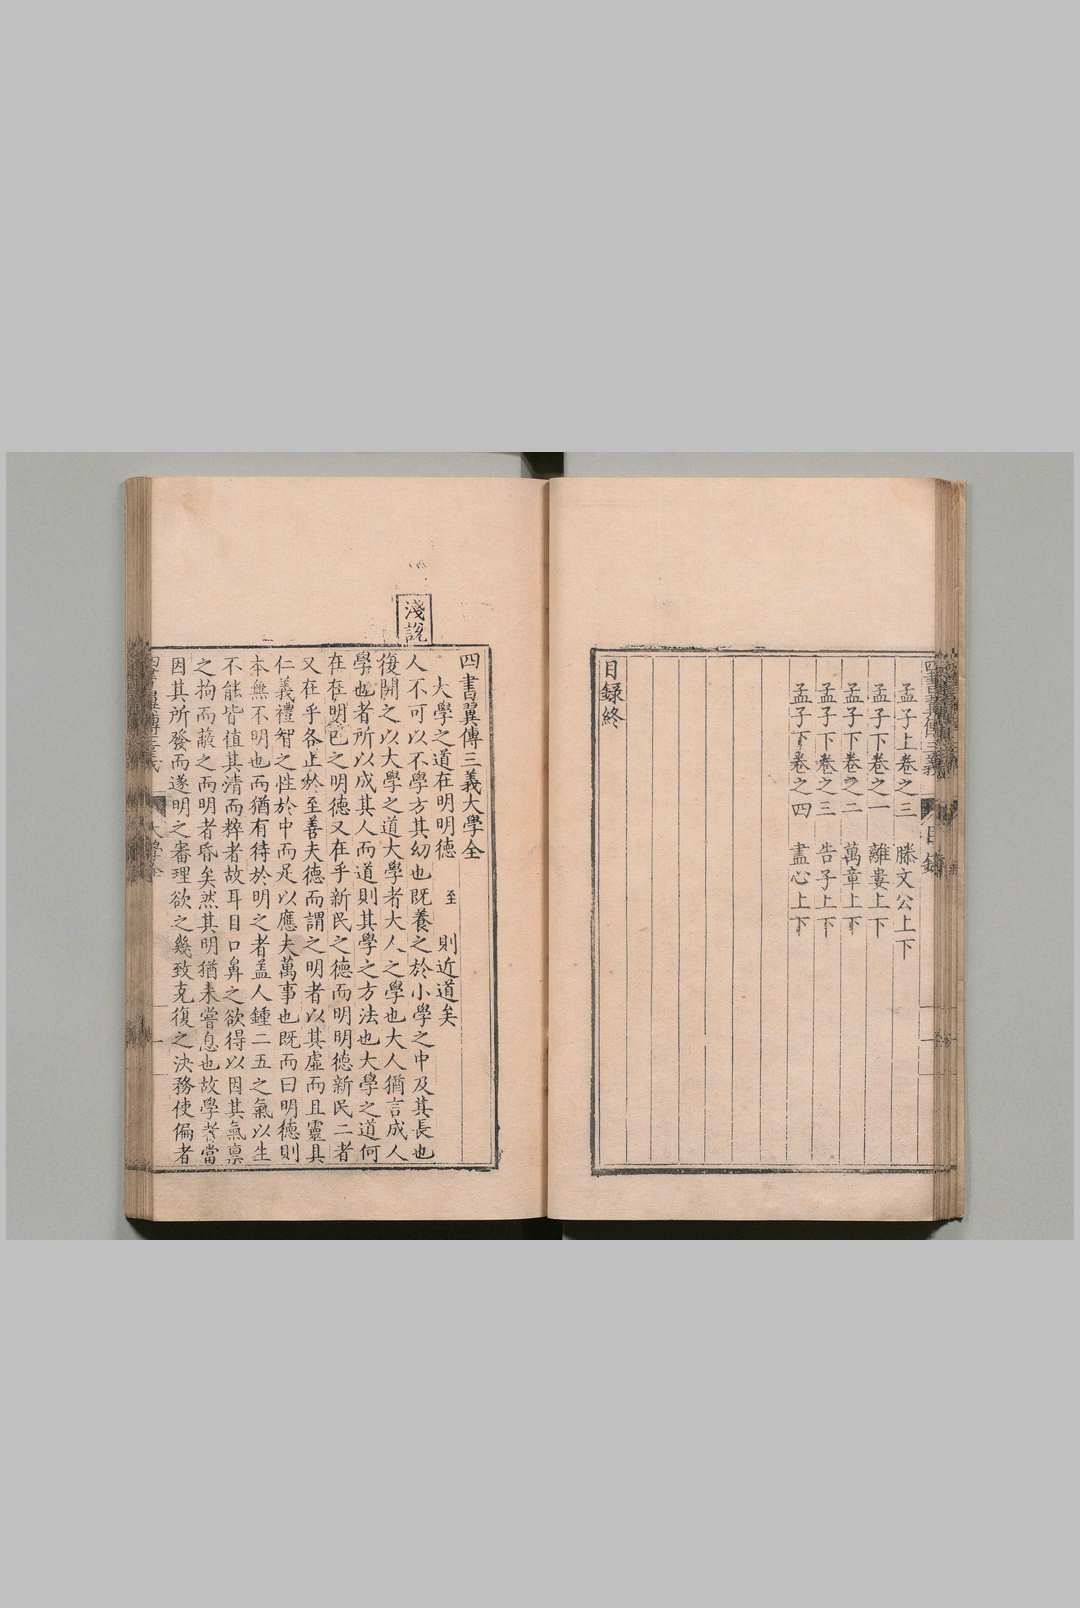 孟子上卷之三　滕文公上下
孟子下卷之一　離婁上下
孟子下卷之二　萬章上下
孟子下卷之三　告子上下
孟子下卷之四　盡心上下
目録終
目錄
淺説
四書翼傳三義大學全
大學之道在明明德　至　則近道矣
人不可以不學方其幼也既養之於小學之中及其長也
復開之以大學之道大學者大人之學也大人猶言成人
學也者所以成其人而道則其學之方法也大學之道何
在在明己之明德又在乎新民之德而明明德新民二者
又在乎各止於至善夫德而謂之明者以其虛而且靈具
仁義禮智之性於中而足以應夫萬事也既而曰明德則
本無不明也而猶有待於明之者盖人鍾二五之氣以生
不能皆值其清而粹者故耳目口鼻之欲得以因其氣禀
之拘而蔽之而明者昏矣然其明猶未嘗息也故學者當
因其所發而遂明之審理欲之幾致克復之決務使偏者
大學全